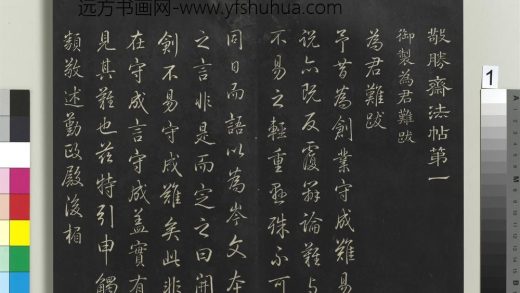 远方书画网-www.yfshuhua.com
敬勝齋法帖第一
御製為君難跋
為君難跋
予昔為創業守成難易
說亦既反覆辯論難與
不易之輕重懸殊不可
同日而語以為岑文本
之言非是而定之曰開
創不易守成難矣此非
在守成言守成蓋實有
見其難也茲特引申觸
類敬述勤政殿後楣
1